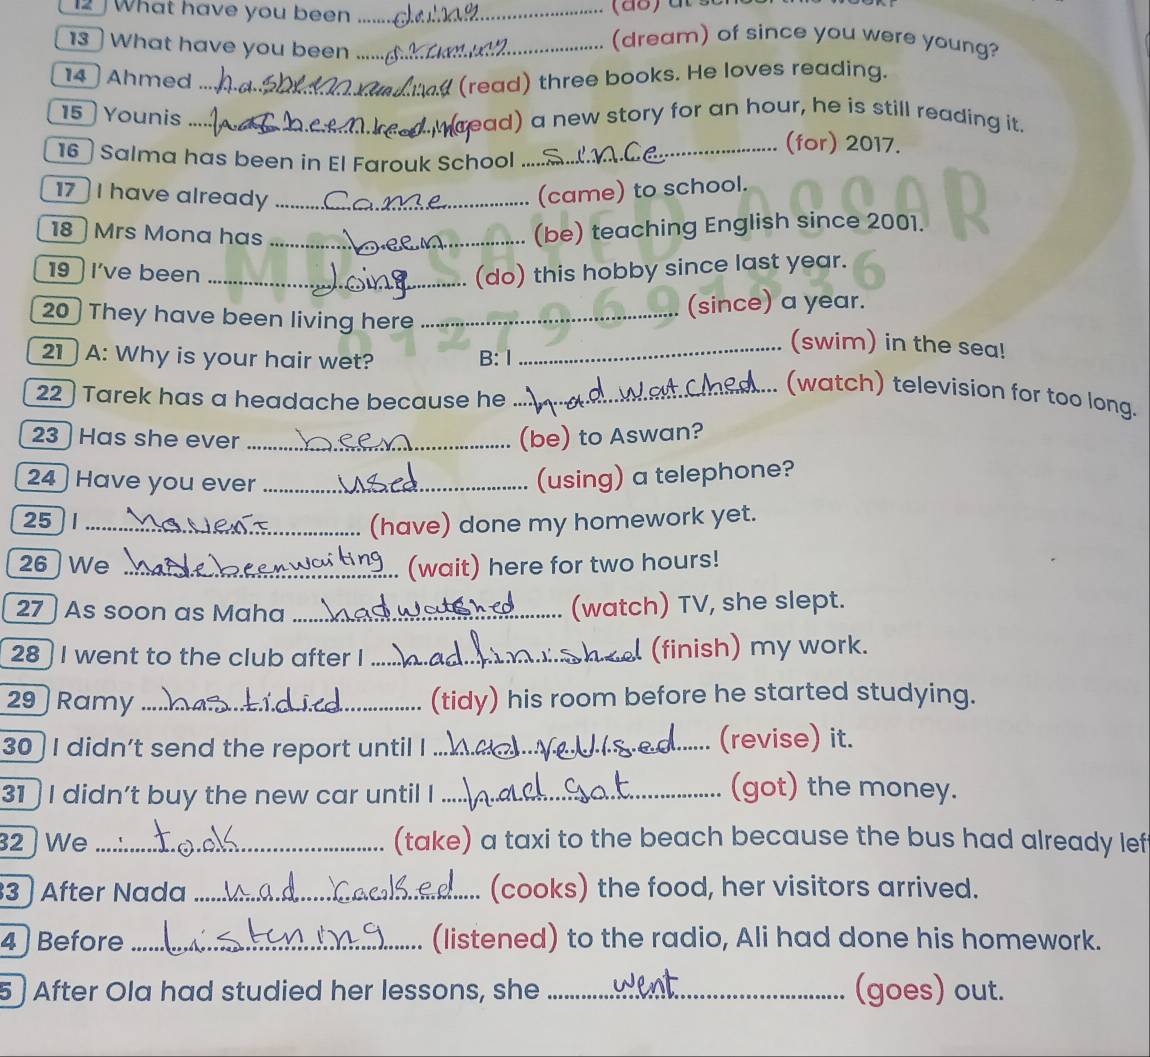 12 What have you been ........doing........ (do) at
13 What have you been ........dreaming........ (dream) of since you were young?
14 Ahmed ....has been reading (read) three books. He loves reading.
15 Younis ....has been reading (read) a new story for an hour, he is still reading it.
16 Salma has been in El Farouk School ........since........ (for) 2017.
17 I have already ........Came........ (came) to school.
18 Mrs Mona has ........been........ (be) teaching English since 2001.
19 I've been ........doing........ (do) this hobby since last year.
20 They have been living here ................ (since) a year.
21 A: Why is your hair wet? B: I ................ (swim) in the sea!
22 Tarek has a headache because he ....had watched.... (watch) television for too long.
23 Has she ever ........been........ (be) to Aswan?
24 Have you ever ........used........ (using) a telephone?
25 I ........haven't........ (have) done my homework yet.
26 We ....have been waiting.... (wait) here for two hours!
27 As soon as Maha ....had watched.... (watch) TV, she slept.
28 I went to the club after I ....had finished (finish) my work.
29 Ramy ....has tidied.... (tidy) his room before he started studying.
30 I didn't send the report until I ....had revised.... (revise) it.
31 I didn't buy the new car until I ....had got.... (got) the money.
32 We ........took........ (take) a taxi to the beach because the bus had already lef
33 After Nada ....had cooked.... (cooks) the food, her visitors arrived.
4 Before ....Listening.... (listened) to the radio, Ali had done his homework.
5 After Ola had studied her lessons, she ........went........ (goes) out.
ELITE
MR SAYED ASSAR